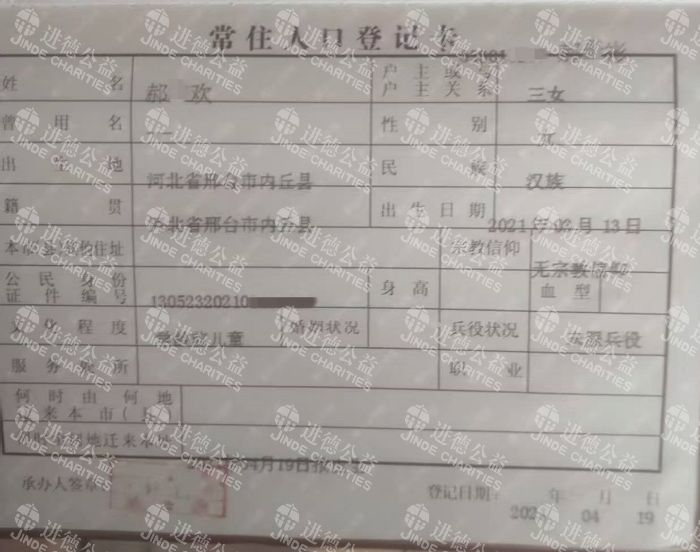 常住人口登记卡
姓名 郝 欢 户主或与户主关系 三女
曾用名 性别
出生地 河北省邢台市内丘县 民族 汉族
籍贯 北省邢台市内丘县 出生日期 2021年02月13日
本市(县)其他住址 宗教信仰 无宗教信仰
公民身份证件编号 13052320210 身高 血型
文化程度 学龄前儿童 婚姻状况 兵役状况 未服兵役
服务处所 职业
何时由何地迁来本市(县)
何时何地迁来本址
04月19日报出生
承办人签章 登记日期: 年 月 日
202 04 19
进德公益
JINDE CHARITIES